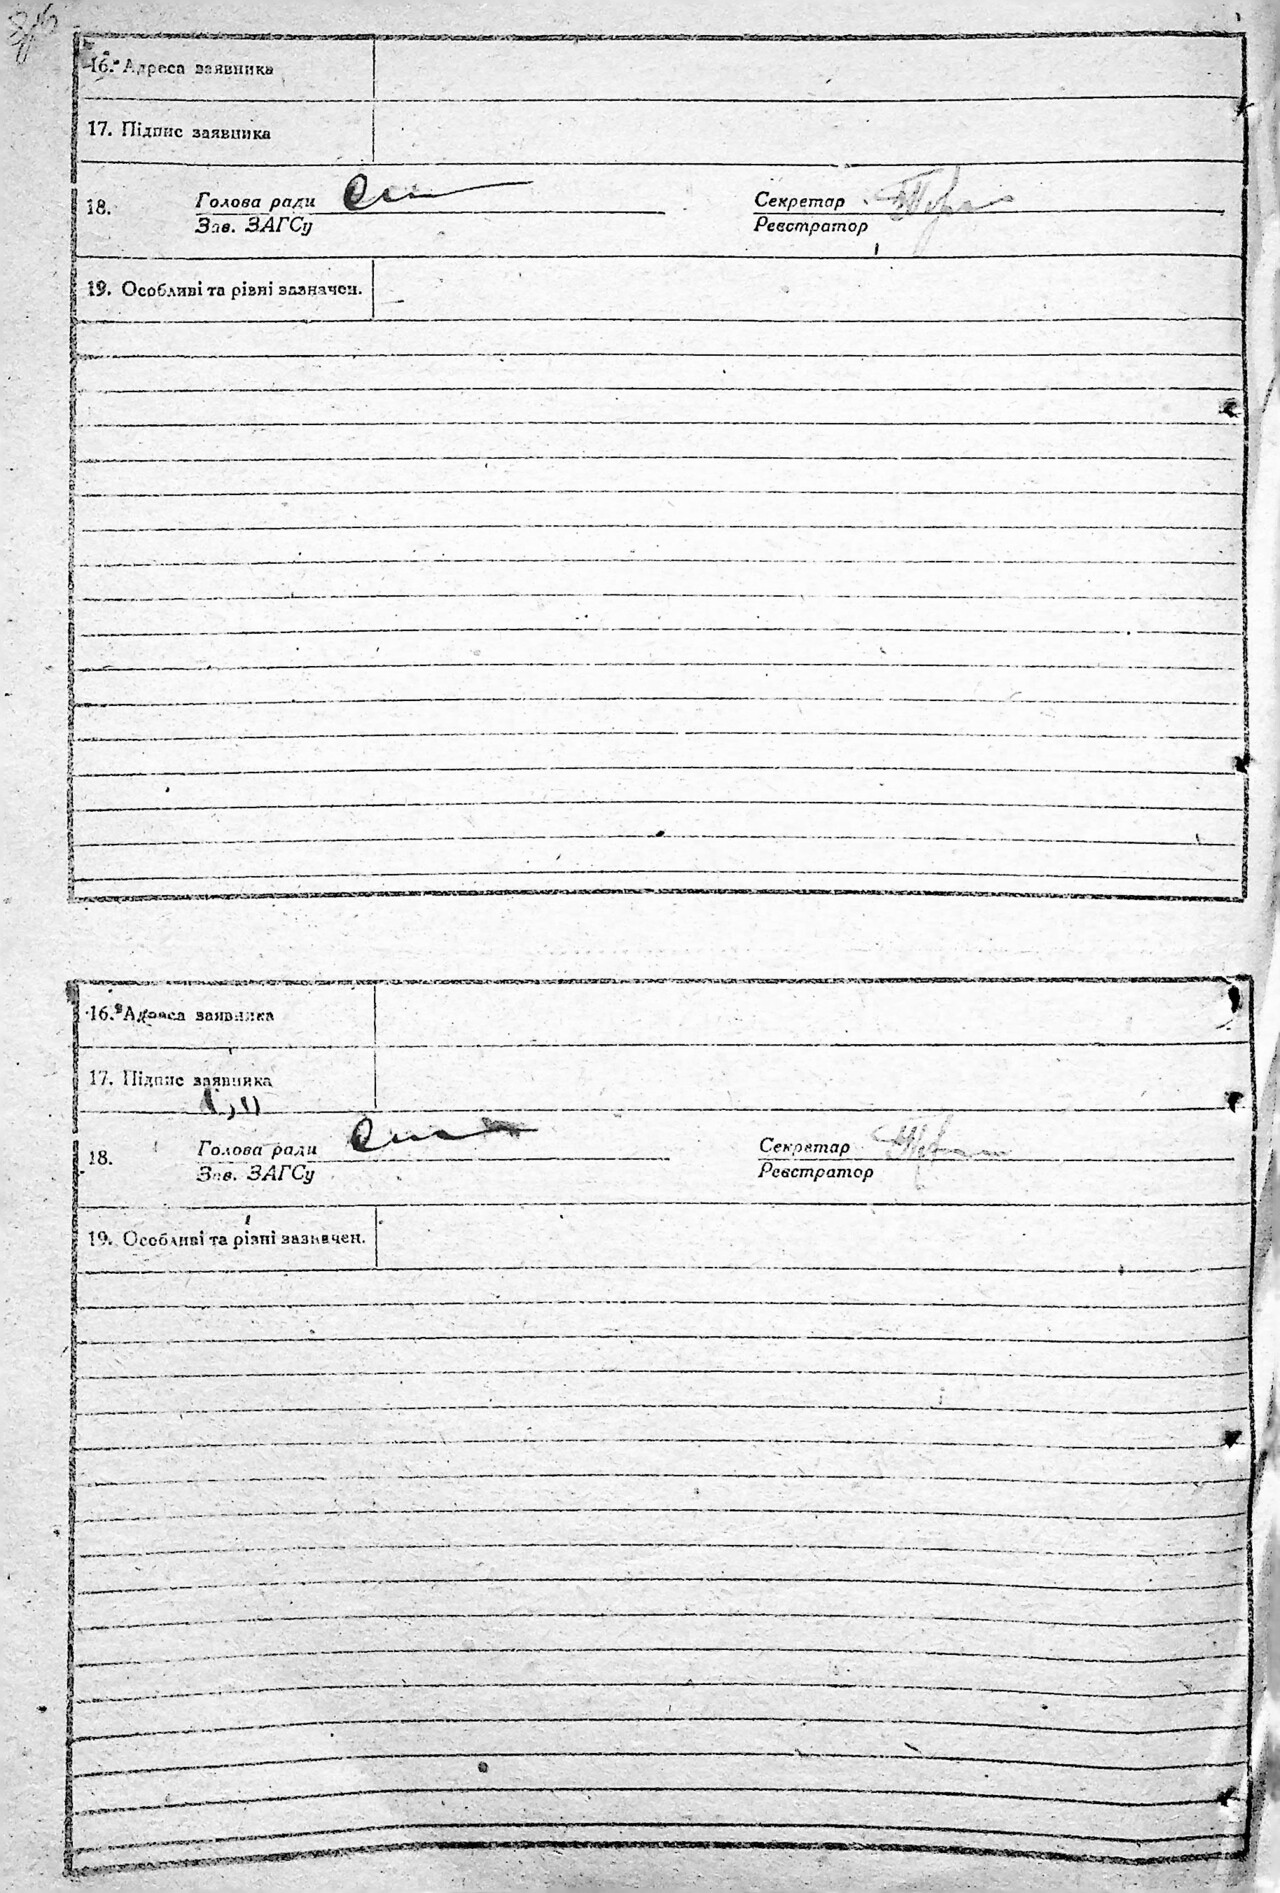 16. Адреса заявника
17. Підпис заявника
18. Голова ради Секретар
Зав. ЗАГСу Реєстратор
19. Особливі та рівні зазначен.
16. Адреса заявника
17. Підпис заявника
18. Голова ради Секретар
Зав. ЗАГСу Реєстратор
19. Особливі та різні зазначен.